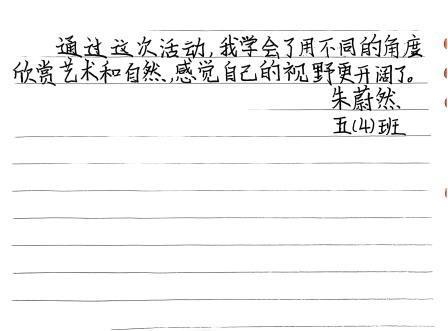 通过这次活动,我学会了用不同的角度
欣赏艺术和自然,感觉自己的视野更开阔了。
朱蔚然
五(4)班